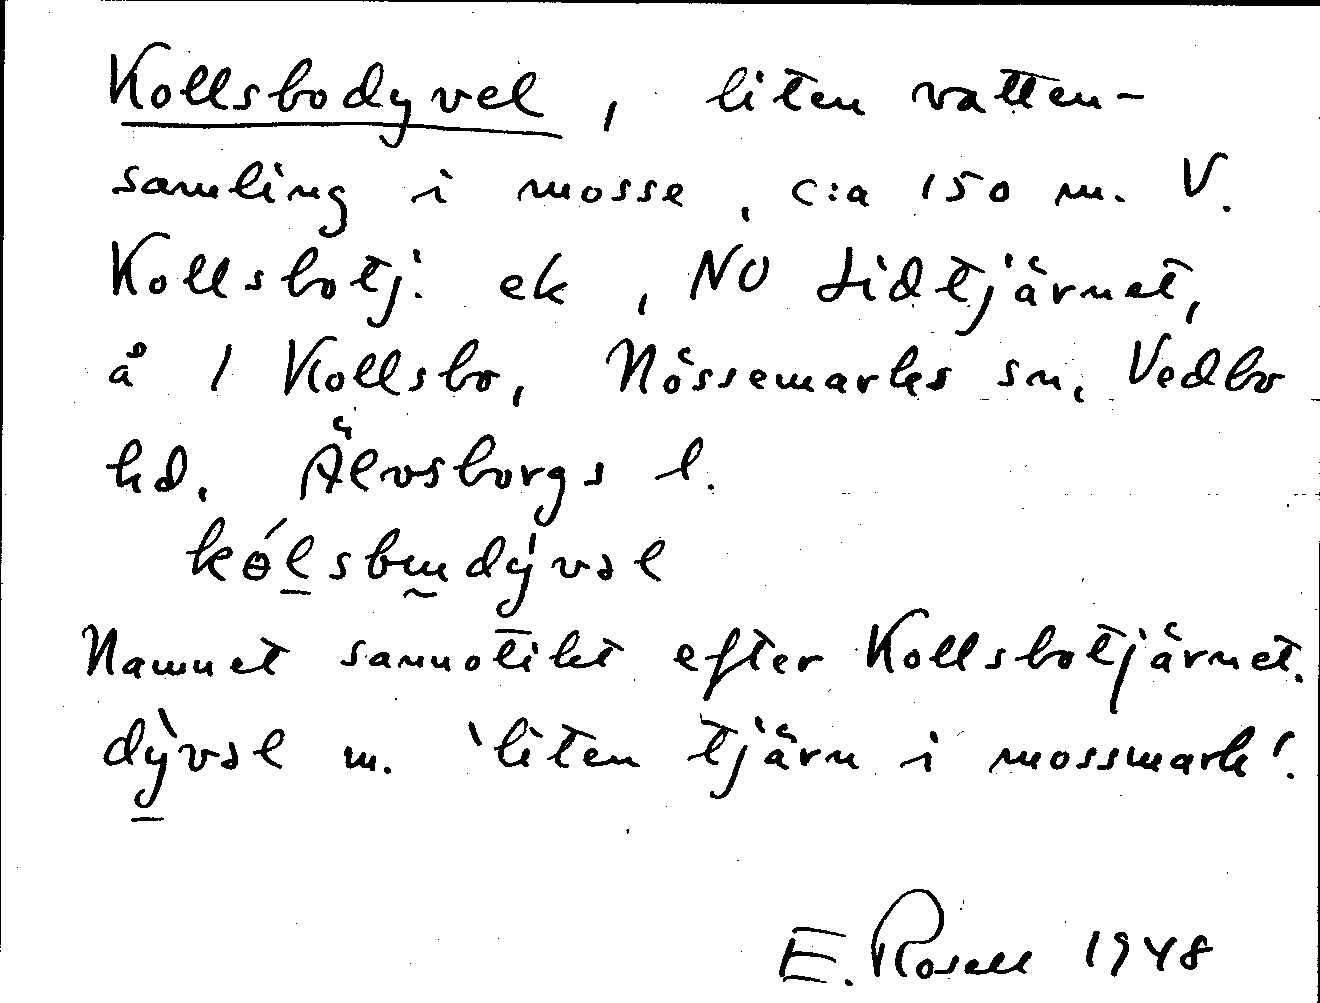 Kollsbodyvel, liten vatten-
samling i mosse, c:a 150 m. V.
Kollsbotj. ek, NO Lidtjärnet,
å 1 Kollsbo, Nössemarks sn, Vedbo
hd. Älvsborgs l.
kólsbɯdývəl
Namnet sannolikt efter Kollsbotjärnet.
dỳvəl m. 'liten tjärn i mossmark'.
E. Rosell 1948